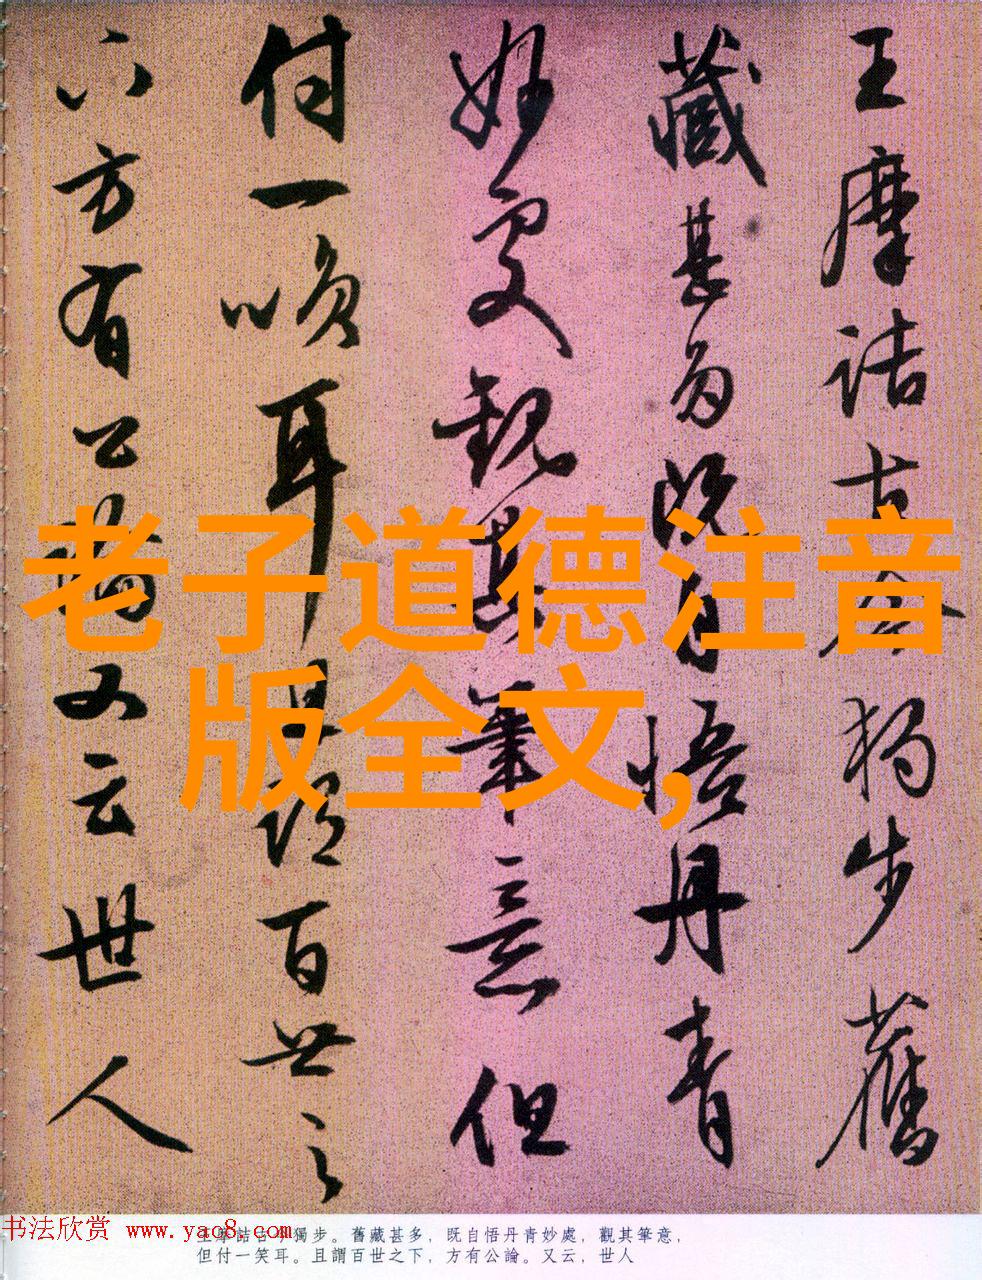 王摩詰古今獨步舊
藏甚多既自悟丹青
妙處觀其筆意但
付一笑耳且謂百世之
下方有公論又云世人
老子道德注音
版全文,
书法欣赏 www.yac8.com
王摩詰古今獨步。舊藏甚多，既自悟丹青妙處，觀其筆意，
但付一笑耳。且謂百世之下，方有公論。又云，世人